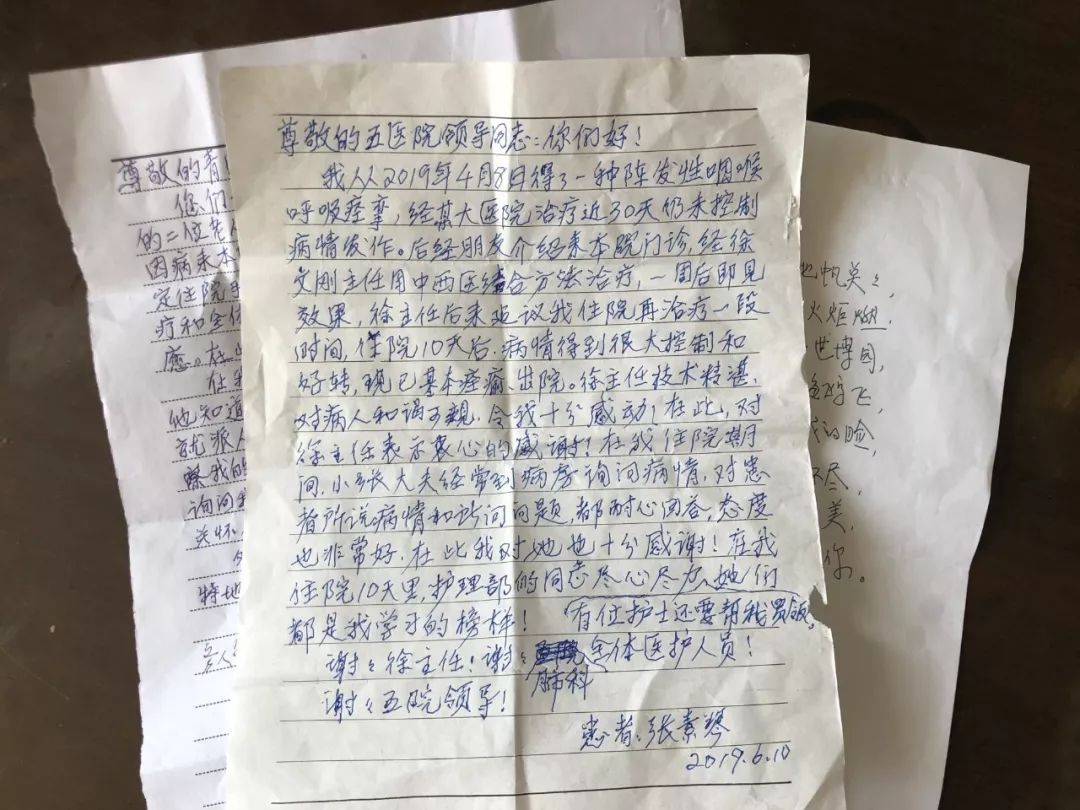 尊敬的五医院领导同志:你们好!
我从2019年4月8日得了一种阵发性咽喉
呼吸痉挛,经某大医院治疗近30天仍未控制
病情发作。后经朋友介绍来本院门诊,经徐
文刚主任用中西医结合方法治疗,一周后即见
效果,徐主任后来建议我住院再治疗一段
时间,住院10天后,病情得到很大控制和
好转,现已基本痊愈、出院。徐主任技术精湛、
对病人和谒可亲,令我十分感动!在此,对
徐主任表示衷心的感谢!在我住院期
间,小张大夫经常到病房询问病情,对患
者所说病情和所问问题,都耐心回答,态度
也非常好.在此我对她也十分感谢!在我
住院10天里,护理部的同志尽心尽力,她们
都是我学习的榜样! 有位护士还要帮我买饭。
谢々徐主任!谢々 全体医护人员!
肺科
谢々五院领导!
患者:张素琴
2019.6.10
尊敬的
您们
的二位
因病来本
定住院
疗和
愈。在
住
他知道
就派人
察我的
询问
关怀
特地
火炬
世博园,
飞,
的脸,
不尽,
美,
你。